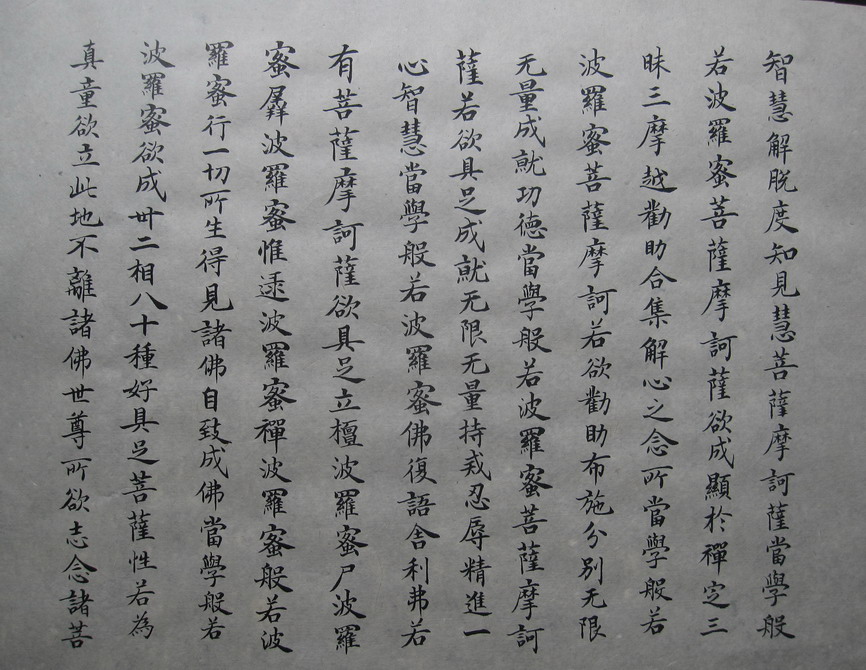 智慧解脱度知見慧菩薩摩訶薩當學般
若波羅蜜菩薩摩訶薩欲成顯於禪定三
昧三摩越勸助合集解心之念所當學般若
波羅蜜菩薩摩訶若欲勸助布施分別无限
无量成就功德當學般若波羅蜜菩薩摩訶
薩若欲具足成就无限无量持戒忍辱精進一
心智慧當學般若波羅蜜佛復語舍利弗若
有菩薩摩訶薩欲具足立檀波羅蜜尸波羅
蜜羼波羅蜜惟逮波羅蜜禪波羅蜜般若波
羅蜜行一切所生得見諸佛自致成佛當學般若
波羅蜜欲成卅二相八十種好具足菩薩性若為
真童欲立此地不離諸佛世尊所欲志念諸菩